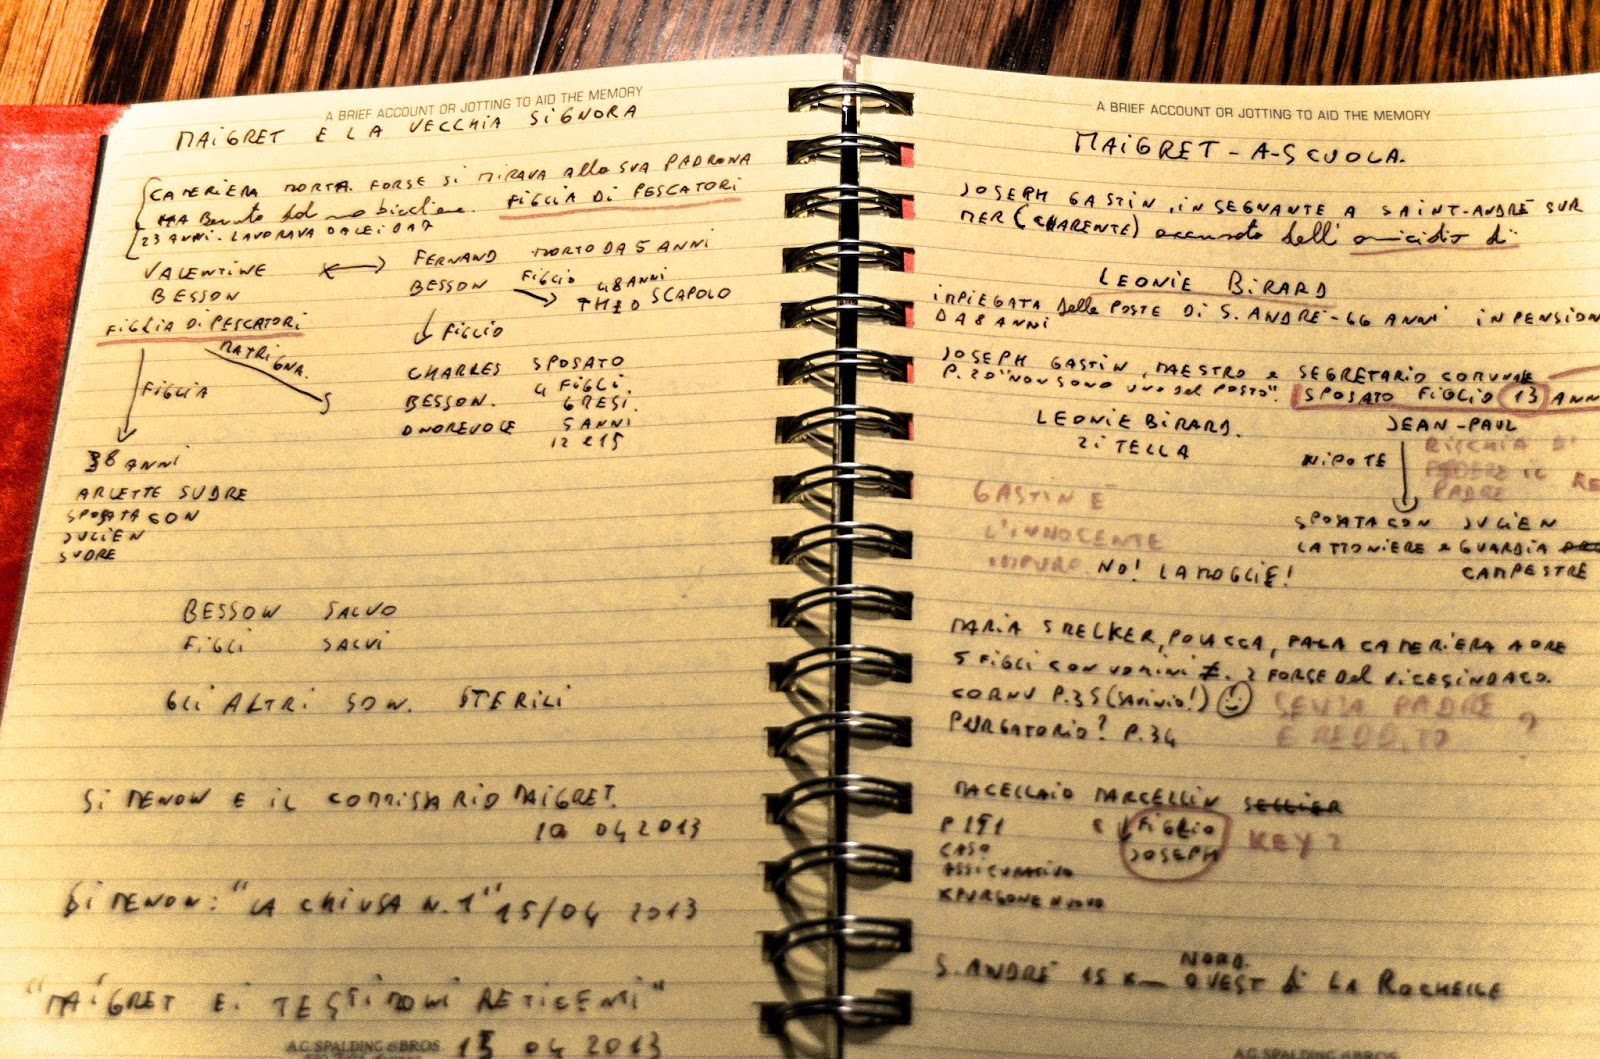 A BRIEF ACCOUNT OR JOTTING TO AID THE MEMORY
MAIGRET E LA VECCHIA SIGNORA
CAMERIERA MORTA. FORSE SI MIRAVA allo SUA PADRONA
HA Bevuto dal suo bicchiere. FIGLIA DI PESCATORI
23 ANNI. LAVORAVA DA LEI DA 7
VALENTINE
BESSON
FIGLIA DI PESCATORI
MATRIGNA.
FIGLIA
38 ANNI
ARLETTE SUDRE
SPOSATA CON
JULIEN
SUDRE
FERNAND MORTO DA 5 ANNI
BESSON FIGLIO 48 ANNI
THEO SCAPOLO
FIGLIO
CHARRES SPOSATO
4 FIGLI.
BESSON. GRESI.
ONOREVOLE 5 ANNI
12 e 15
BESSON SALVO
FIGLI SALVI
GLI ALTRI SON. STERILI
SIMENON E IL COMMISSARIO MAIGRET.
10 04 2013
SIMENON: "LA CHIUSA N.1" 15/04 2013
"MAIGRET E I TESTIMONI RETICENTI"
15 04 2013
A.G. SPALDING & BROS.
A BRIEF ACCOUNT OR JOTTING TO AID THE MEMORY
MAIGRET - A - SCUOLA.
JOSEPH GASTIN, INSEGNANTE A SAINT-ANDRÉ SUR
MER (CHARENTE) accusato dell'omicidio di
LEONIE BIRARD
IMPIEGATA delle POSTE DI S. ANDRÉ - 66 ANNI IN PENSION
DA 8 ANNI
JOSEPH GASTIN, MAESTRO e SEGRETARIO COMUNALE
P. 20 "NON SONO UNO del POSTO". SPOSATO FIGLIO 13 ANN
LEONIE BIRARD.
ZITELLA
JEAN-PAUL
NIPOTE
RISCHIA DI
PERDERE IL RE
PADRE
SPOSATA CON JULIEN
LATTONIERE e GUARDIA
CAMPESTRE
GASTIN È
L'INNOCENTE
IMPURO NO! LA MOGLIE!
MARIA SMELKER, POLACCA, FA LA CAMERIERA A ORE
5 FIGLI CON UOMINI ≠. 2 FORSE Del VICESINDACO.
CORNU P.35 (SAVINIO!)
PURGATORIO? P.34
SENZA PADRE
E REDDITO ?
MACELLAIO MARCELLIN SELLIER
FIGLIO
JOSEPH
KEY?
P 191
CASO
ASSICURATIVO
X FURGONE NUOVO
S. ANDRÉ 15 K NORD.
OVEST di LA ROCHELLE
A.G. SPALDING & BROS.